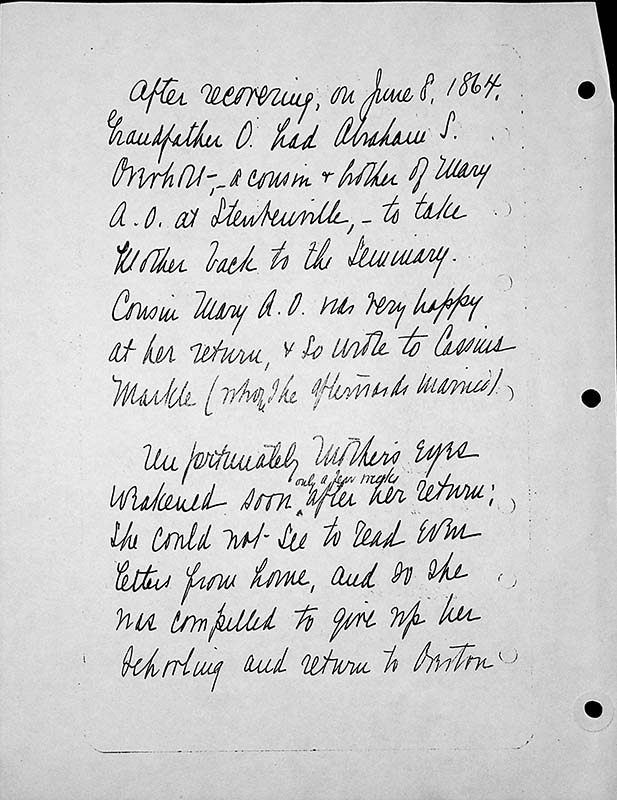 After recovering, on June 8, 1864,
Grandfather O. had Abraham S.
Overholt, - a cousin & brother of Mary
A. O. at Steubenville, - to take
Mother back to the Seminary.
Cousin Mary A. O. was very happy
at her return, & so wrote to Cassius
Markle (whom she afterwards married).
Unfortunately Mother's eyes
only a few weeks
weakened soon ^ after her return;
She could not see to read even
letters from home, and so she
was compelled to give up her
schooling and return to Overton